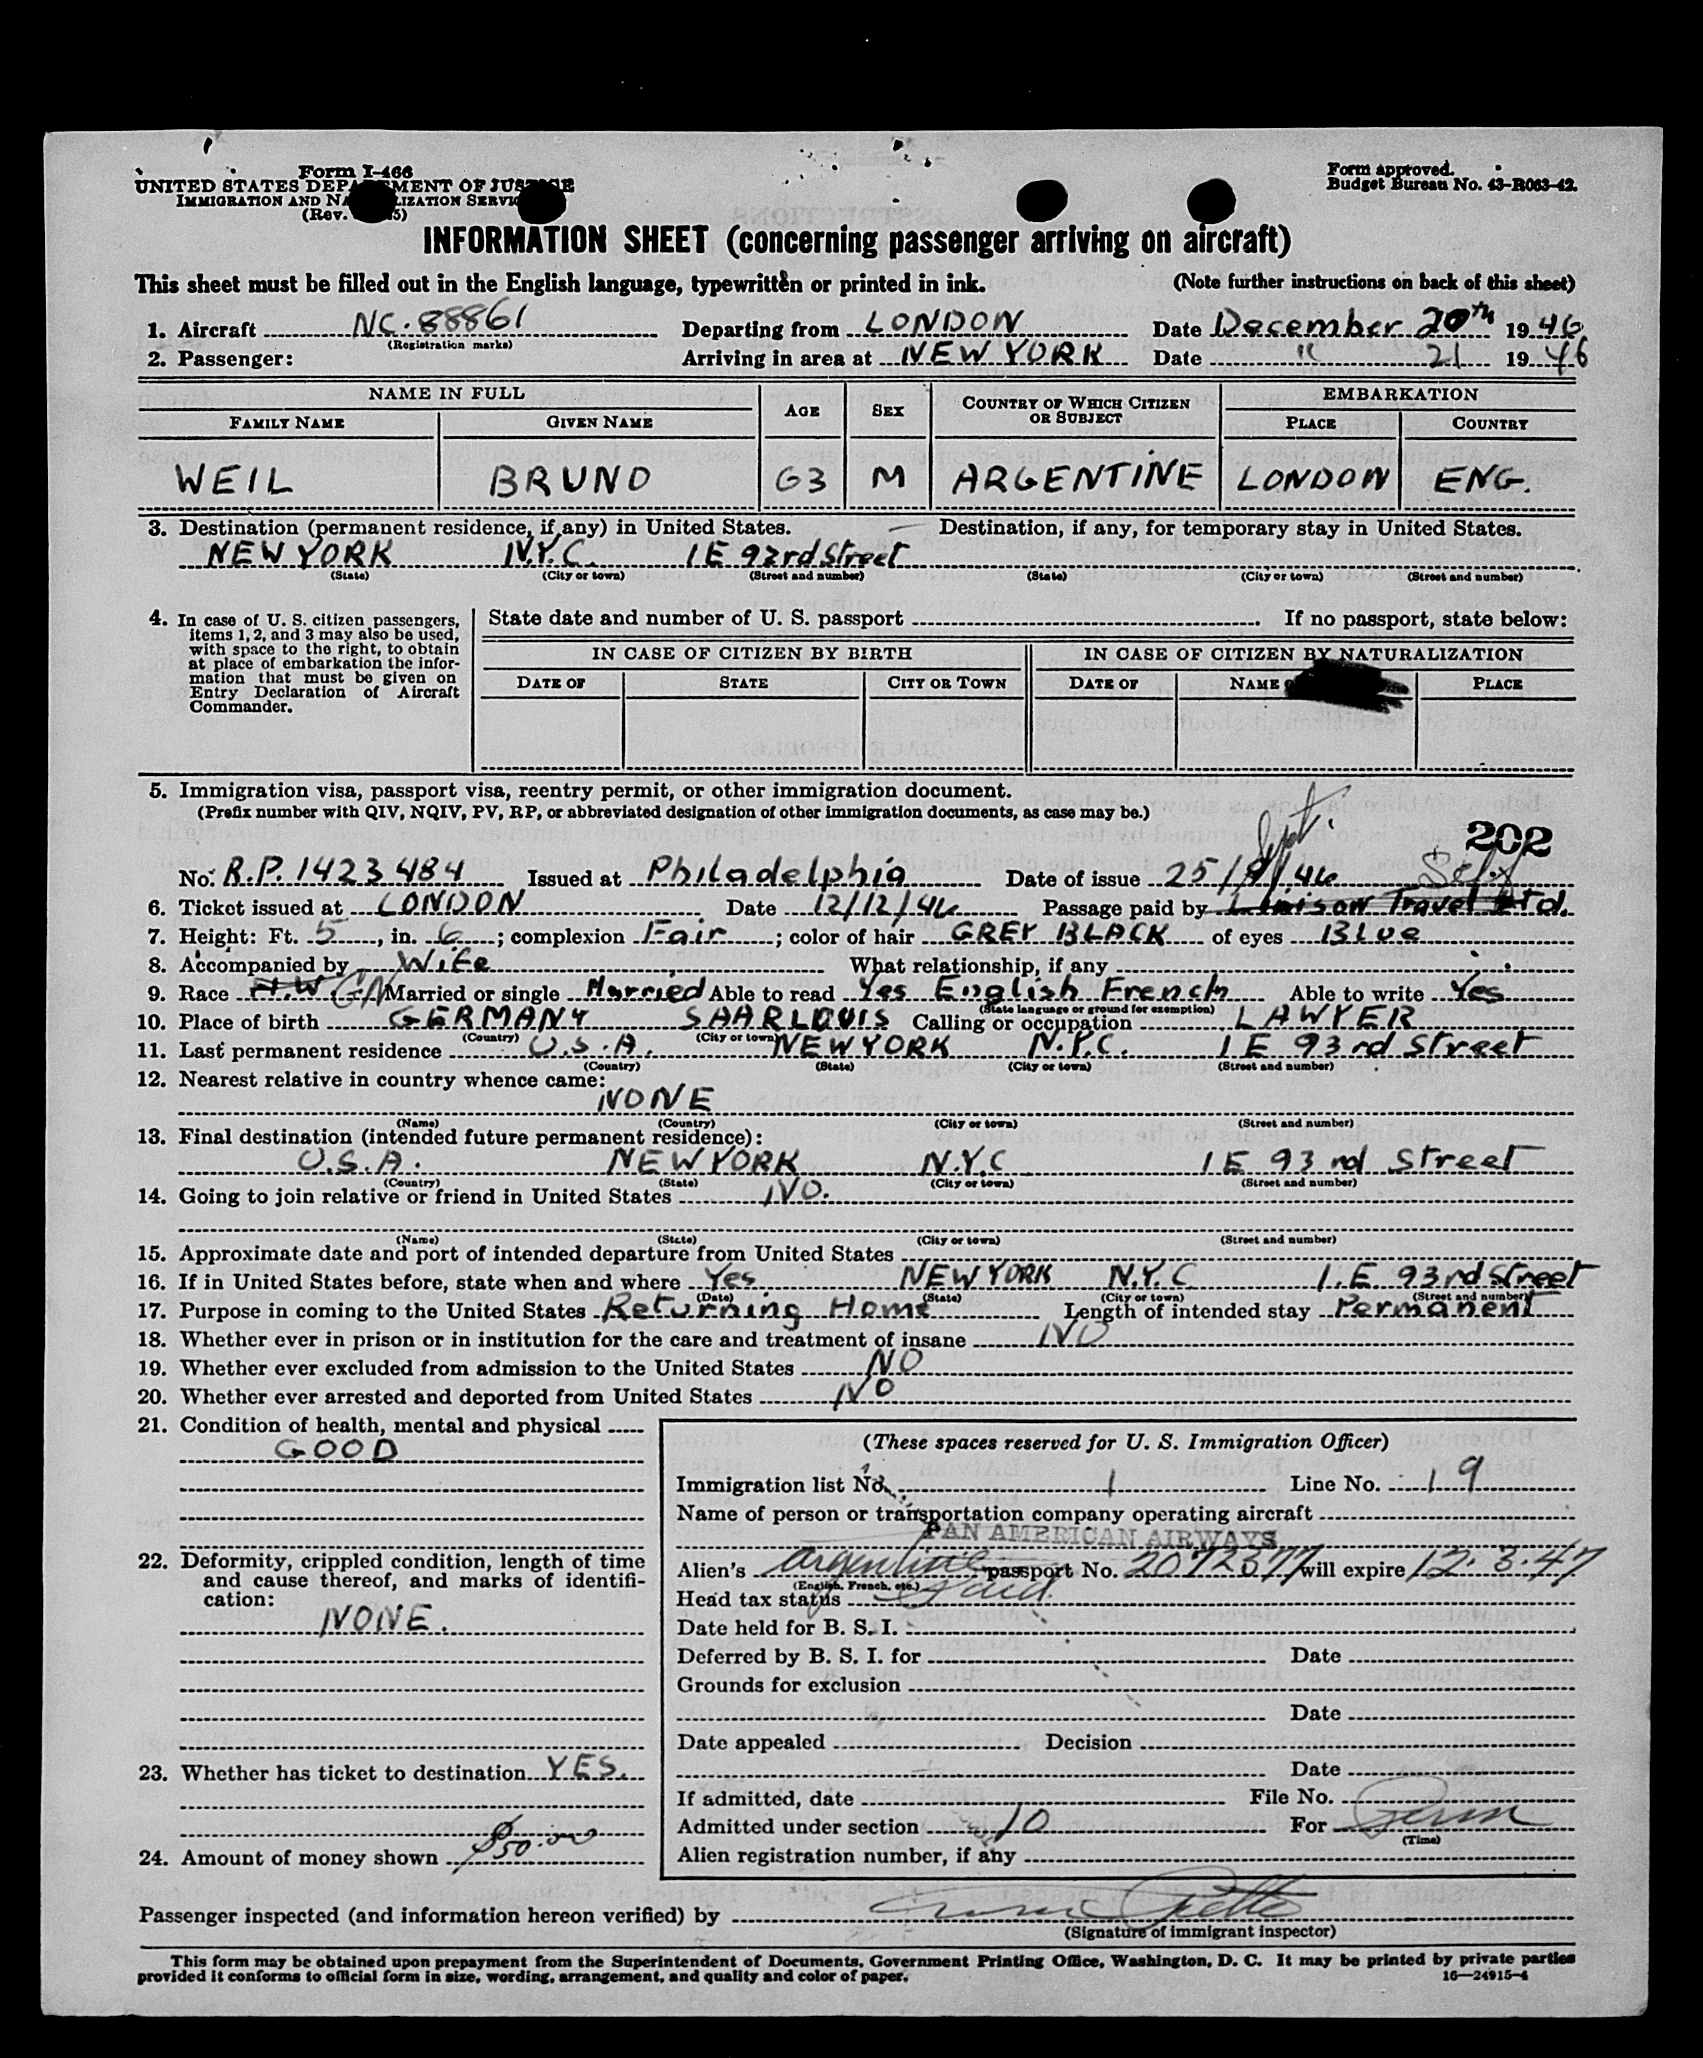 Form I-466
UNITED STATES DEPARTMENT OF JUSTICE
IMMIGRATION AND NATURALIZATION SERVICE
(Rev. 5)
Form approved.
Budget Bureau No. 43-R063-42.
INFORMATION SHEET (concerning passenger arriving on aircraft)
This sheet must be filled out in the English language, typewritten or printed in ink. (Note further instructions on back of this sheet)
1. Aircraft NC-88861 Departing from LONDON Date December 20th 1946
(Registration marks)
2. Passenger: Arriving in area at NEW YORK Date " 21 1946
NAME IN FULL AGE SEX COUNTRY OF WHICH CITIZEN OR SUBJECT EMBARKATION
FAMILY NAME GIVEN NAME PLACE COUNTRY
WEIL BRUNO 63 M ARGENTINE LONDON ENG.
3. Destination (permanent residence, if any) in United States. Destination, if any, for temporary stay in United States.
NEW YORK N.Y.C. 1 E 93rd Street
(State) (City or town) (Street and number) (State) (City or town) (Street and number)
4. In case of U. S. citizen passengers,
items 1, 2, and 3 may also be used,
with space to the right, to obtain
at place of embarkation the infor-
mation that must be given on
Entry Declaration of Aircraft
Commander.
State date and number of U. S. passport If no passport, state below:
IN CASE OF CITIZEN BY BIRTH IN CASE OF CITIZEN BY NATURALIZATION
DATE OF STATE CITY OR TOWN DATE OF NAME PLACE
5. Immigration visa, passport visa, reentry permit, or other immigration document.
(Prefix number with QIV, NQIV, PV, RP, or abbreviated designation of other immigration documents, as case may be.)
Sept. 202
No. R.P. 1423484 Issued at Philadelphia Date of issue 25/9/46 Self
6. Ticket issued at LONDON Date 12/12/46 Passage paid by Travel Ltd.
7. Height: Ft. 5, in. 6; complexion Fair; color of hair GREY BLACK of eyes Blue
8. Accompanied by Wife What relationship, if any
9. Race Married or single Married Able to read Yes English French Able to write Yes
(State language or ground for exemption)
10. Place of birth GERMANY SAARLOUIS Calling or occupation LAWYER
(Country) (City or town)
11. Last permanent residence U.S.A. NEW YORK N.Y.C. 1 E 93rd Street
(Country) (State) (City or town) (Street and number)
12. Nearest relative in country whence came:
NONE
(Name) (Country) (City or town) (Street and number)
13. Final destination (intended future permanent residence):
U.S.A. NEW YORK N.Y.C 1 E 93rd Street
(Country) (State) (City or town) (Street and number)
14. Going to join relative or friend in United States NO.
(Name) (State) (City or town) (Street and number)
15. Approximate date and port of intended departure from United States
16. If in United States before, state when and where Yes NEW YORK N.Y.C 1.E 93rd Street
(Date) (State) (City or town) (Street and number)
17. Purpose in coming to the United States Returning Home Length of intended stay Permanent
18. Whether ever in prison or in institution for the care and treatment of insane NO
19. Whether ever excluded from admission to the United States NO
20. Whether ever arrested and deported from United States NO
21. Condition of health, mental and physical
GOOD
22. Deformity, crippled condition, length of time
and cause thereof, and marks of identifi-
cation:
NONE.
23. Whether has ticket to destination YES.
24. Amount of money shown $50.00
(These spaces reserved for U. S. Immigration Officer)
Immigration list No. 1 Line No. 19
Name of person or transportation company operating aircraft
PAN AMERICAN AIRWAYS
Alien's Argentine passport No. 2072377 will expire 12.3.47
(English, French, etc.)
Head tax status Paid
Date held for B. S. I.
Deferred by B. S. I. for Date
Grounds for exclusion
Date
Date appealed Decision
Date
If admitted, date File No.
Admitted under section 10 For Perm
(Time)
Alien registration number, if any
Passenger inspected (and information hereon verified) by
(Signature of immigrant inspector)
This form may be obtained upon prepayment from the Superintendent of Documents, Government Printing Office, Washington, D. C. It may be printed by private parties
provided it conforms to official form in size, wording, arrangement, and quality and color of paper.
16—24915-4